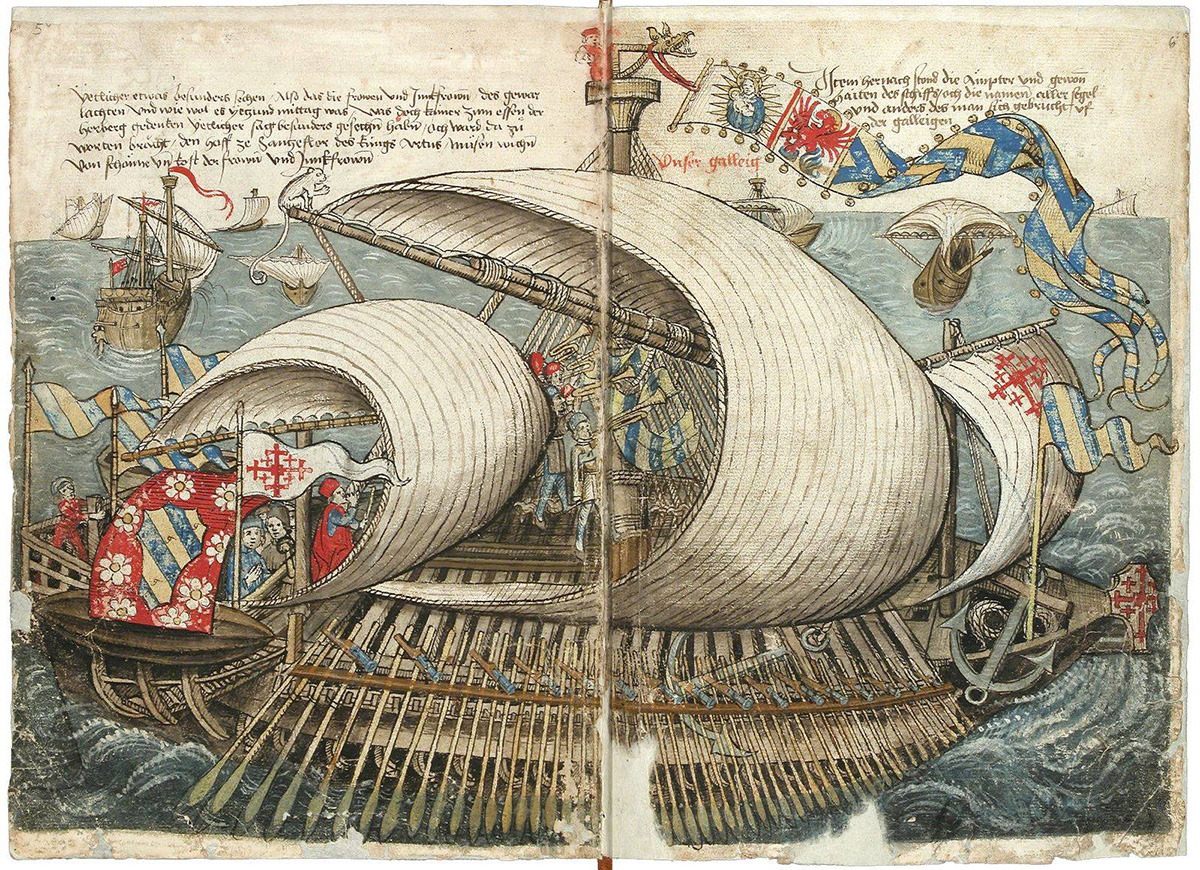 5
yetlicher etwas besunders sehen / Also das die frowen und junkfrowen des gewar
lachten und wie wol es yetzund mittag was / was doch kainer zum essen der
herberg gedencken yetlicher sag besunders gesechen haben / Och ward da zu
worten bracht / den hoff ze des kings Artus
von schönne und kost der frowen und junkfrowen
6
Item hernach stond die Ampter und gewon
haiten des schiffs / och die namen aller segel
und anders des man sich gebrucht uf
der galleigen
Unser galleig